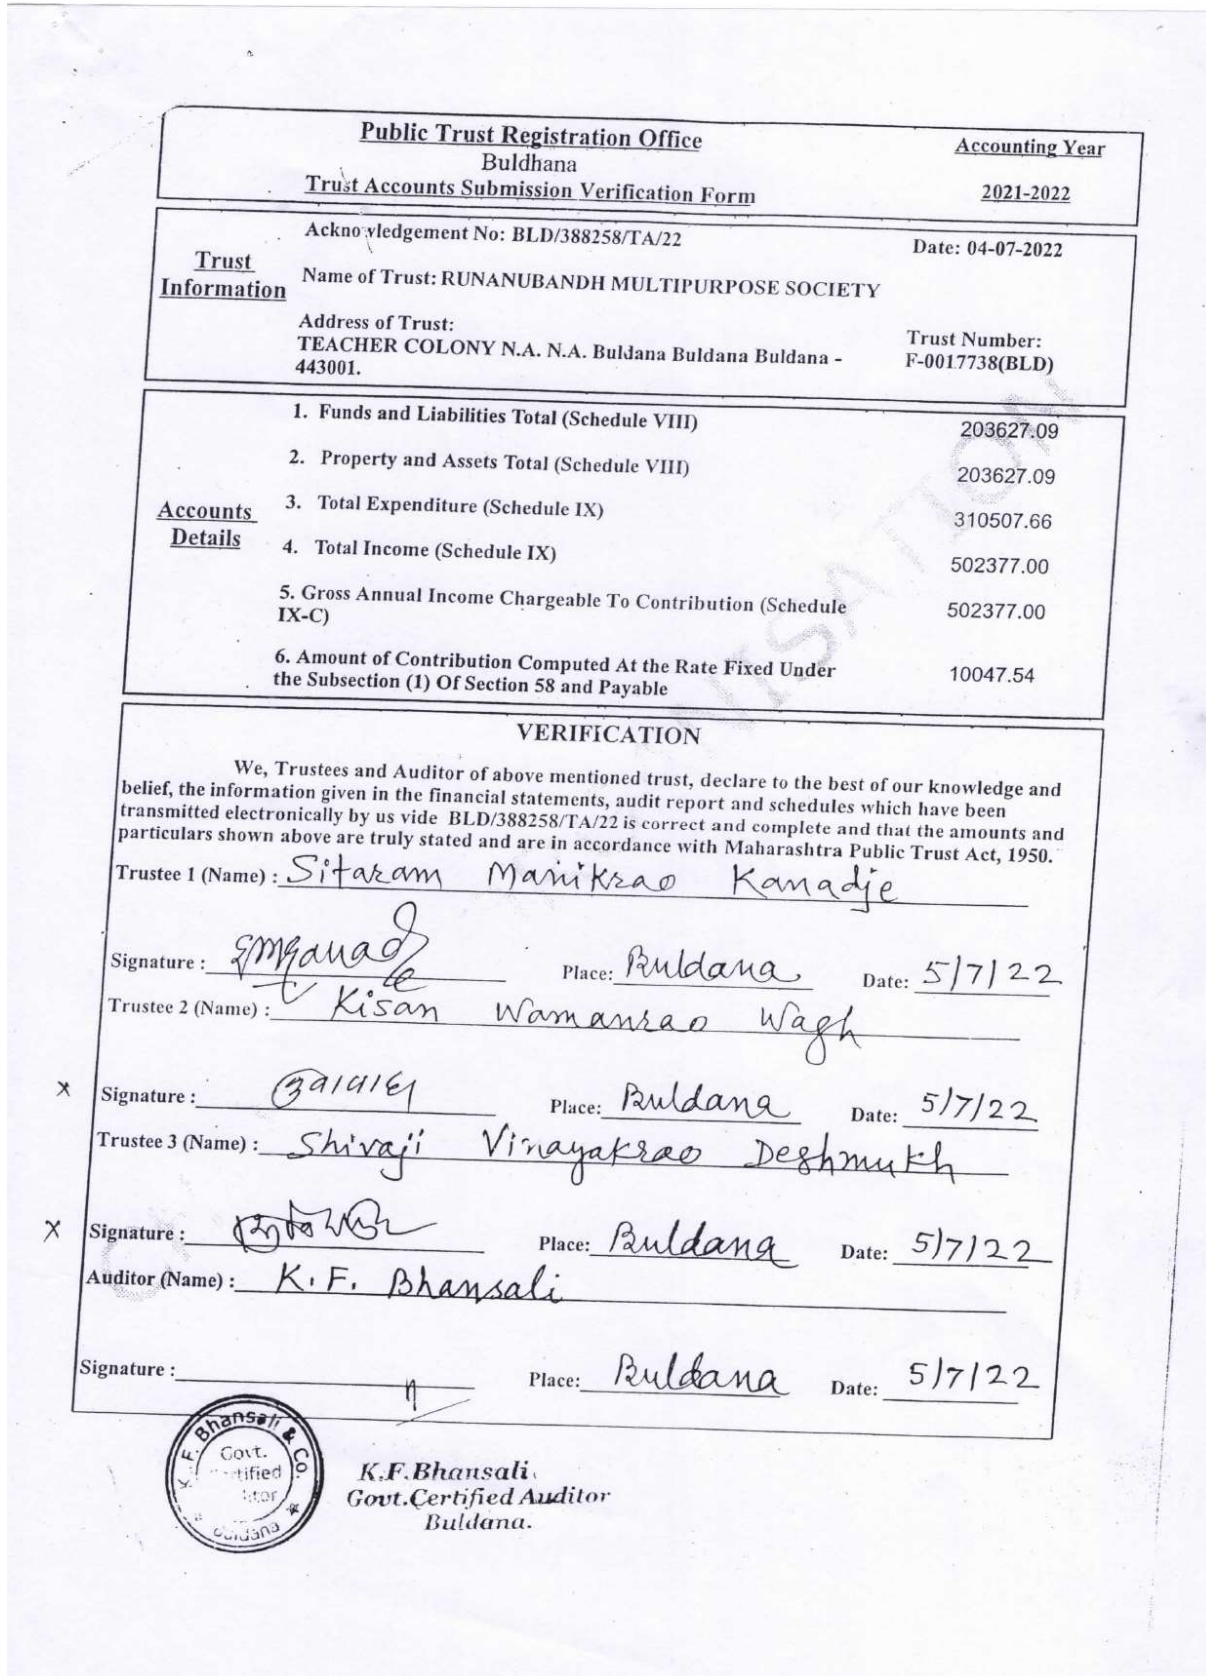 Public Trust Registration Office
Buldhana
Trust Accounts Submission Verification Form
Accounting Year
2021-2022
Trust
Information
Acknowledgement No: BLD/388258/TA/22
Date: 04-07-2022
Name of Trust: RUNANUBANDH MULTIPURPOSE SOCIETY
Address of Trust:
TEACHER COLONY N.A. N.A. Buldana Buldana Buldana -
443001.
Trust Number:
F-0017738(BLD)
Accounts
Details
1. Funds and Liabilities Total (Schedule VIII) 203627.09
2. Property and Assets Total (Schedule VIII) 203627.09
3. Total Expenditure (Schedule IX) 310507.66
4. Total Income (Schedule IX) 502377.00
5. Gross Annual Income Chargeable To Contribution (Schedule
IX-C) 502377.00
6. Amount of Contribution Computed At the Rate Fixed Under
the Subsection (1) Of Section 58 and Payable 10047.54
VERIFICATION
We, Trustees and Auditor of above mentioned trust, declare to the best of our knowledge and
belief, the information given in the financial statements, audit report and schedules which have been
transmitted electronically by us vide BLD/388258/TA/22 is correct and complete and that the amounts and
particulars shown above are truly stated and are in accordance with Maharashtra Public Trust Act, 1950.
Trustee 1 (Name) : Sitaram Manikrao Kanadje
Signature : Place: Buldana Date: 5/7/22
Trustee 2 (Name) : Kisan Wamanrao Wagh
x Signature : Place: Buldana Date: 5/7/22
Trustee 3 (Name) : Shivaji Vinayakrao Deshmukh
x Signature : Place: Buldana Date: 5/7/22
Auditor (Name) : K. F. Bhansali
Signature : Place: Buldana Date: 5/7/22
K. F. Bhansali & Co.
Govt.
Buldana
K.F.Bhansali.
Govt.Certified Auditor
Buldana.